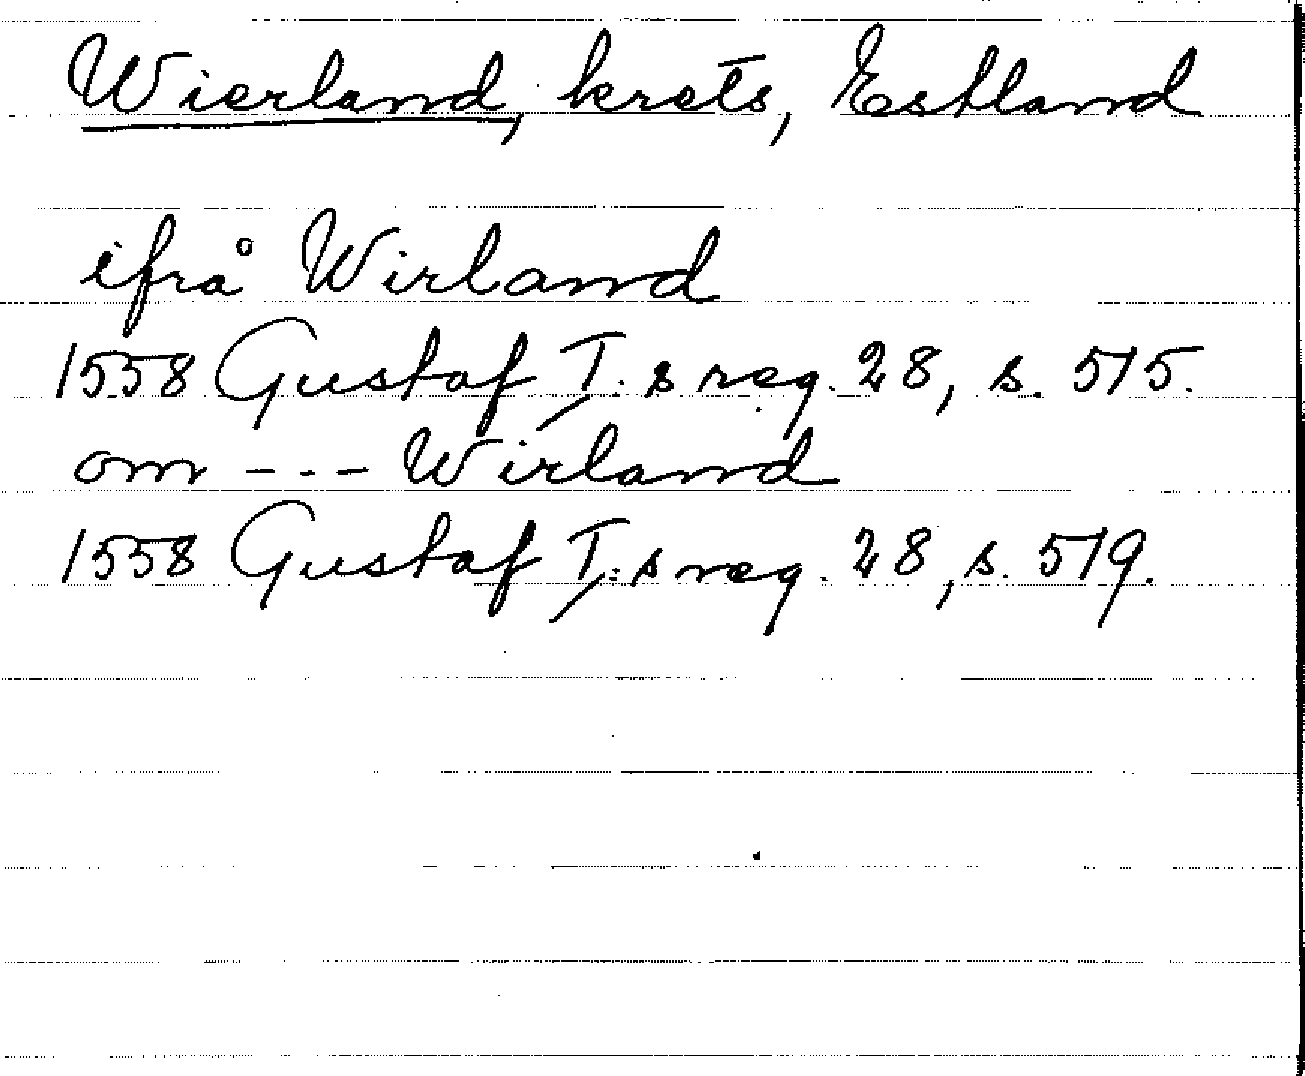 Wierland, krets, Estland
ifrå Wirland
1558 Gustaf I:s reg. 28, s. 515.
om --- Wirland
1558 Gustaf I:s reg. 28, s. 519.